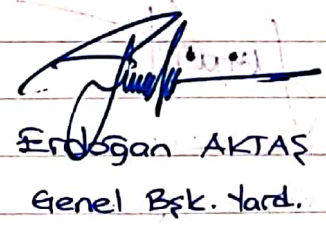 Erdoğan AKTAŞ
Genel Bşk. Yard.